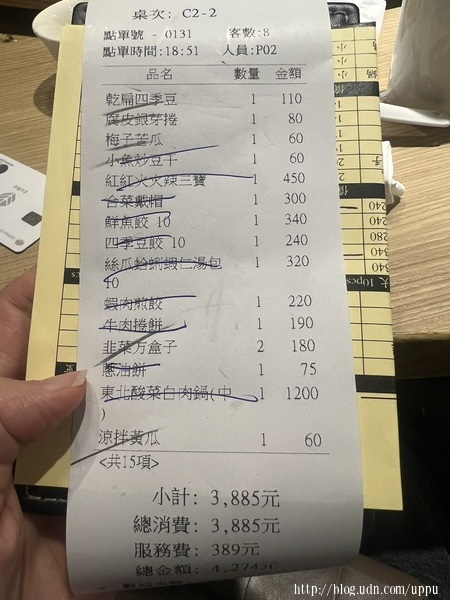 桌次: C2-2
點單號 - 0131 客數:8
點單時間:18:51 人員:P02
品名 數量 金額
乾扁四季豆 1 110
廣皮銀芽捲 1 80
梅子苦瓜 1 60
小魚炒豆干 1 60
紅紅火火辣三寶 1 450
合菜戴帽 1 300
鮮魚餃 10 1 340
四季豆餃 10 1 240
絲瓜蛤蜊蝦仁湯包 1 320
10
蝦肉煎餃 1 220
牛肉捲餅 1 190
韭菜方盒子 2 180
蔥油餅 1 75
東北酸菜白肉鍋(中 1 1200
)
涼拌黃瓜 1 60
<共15項>
小計: 3,885元
總消費: 3,885元
服務費: 389元
總金額: 4,274元
240
240
280
340
340
10pcs
http://blog.udn.com/uppu